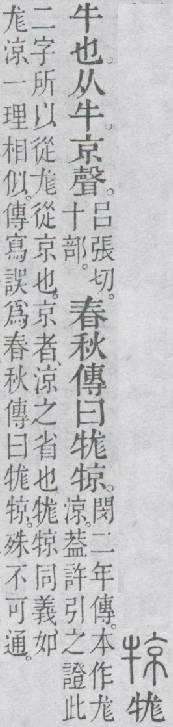 㹁牻
牛也。从牛京聲。呂張切。十部。春秋傳曰牻㹁。閔二年傳。本作尨涼。葢許引之證此
二字所以從尨從京也。京者、涼之省也。牻㹁同義如
尨涼一理相似。傳寫誤爲春秋傳曰牻㹁。殊不可通。